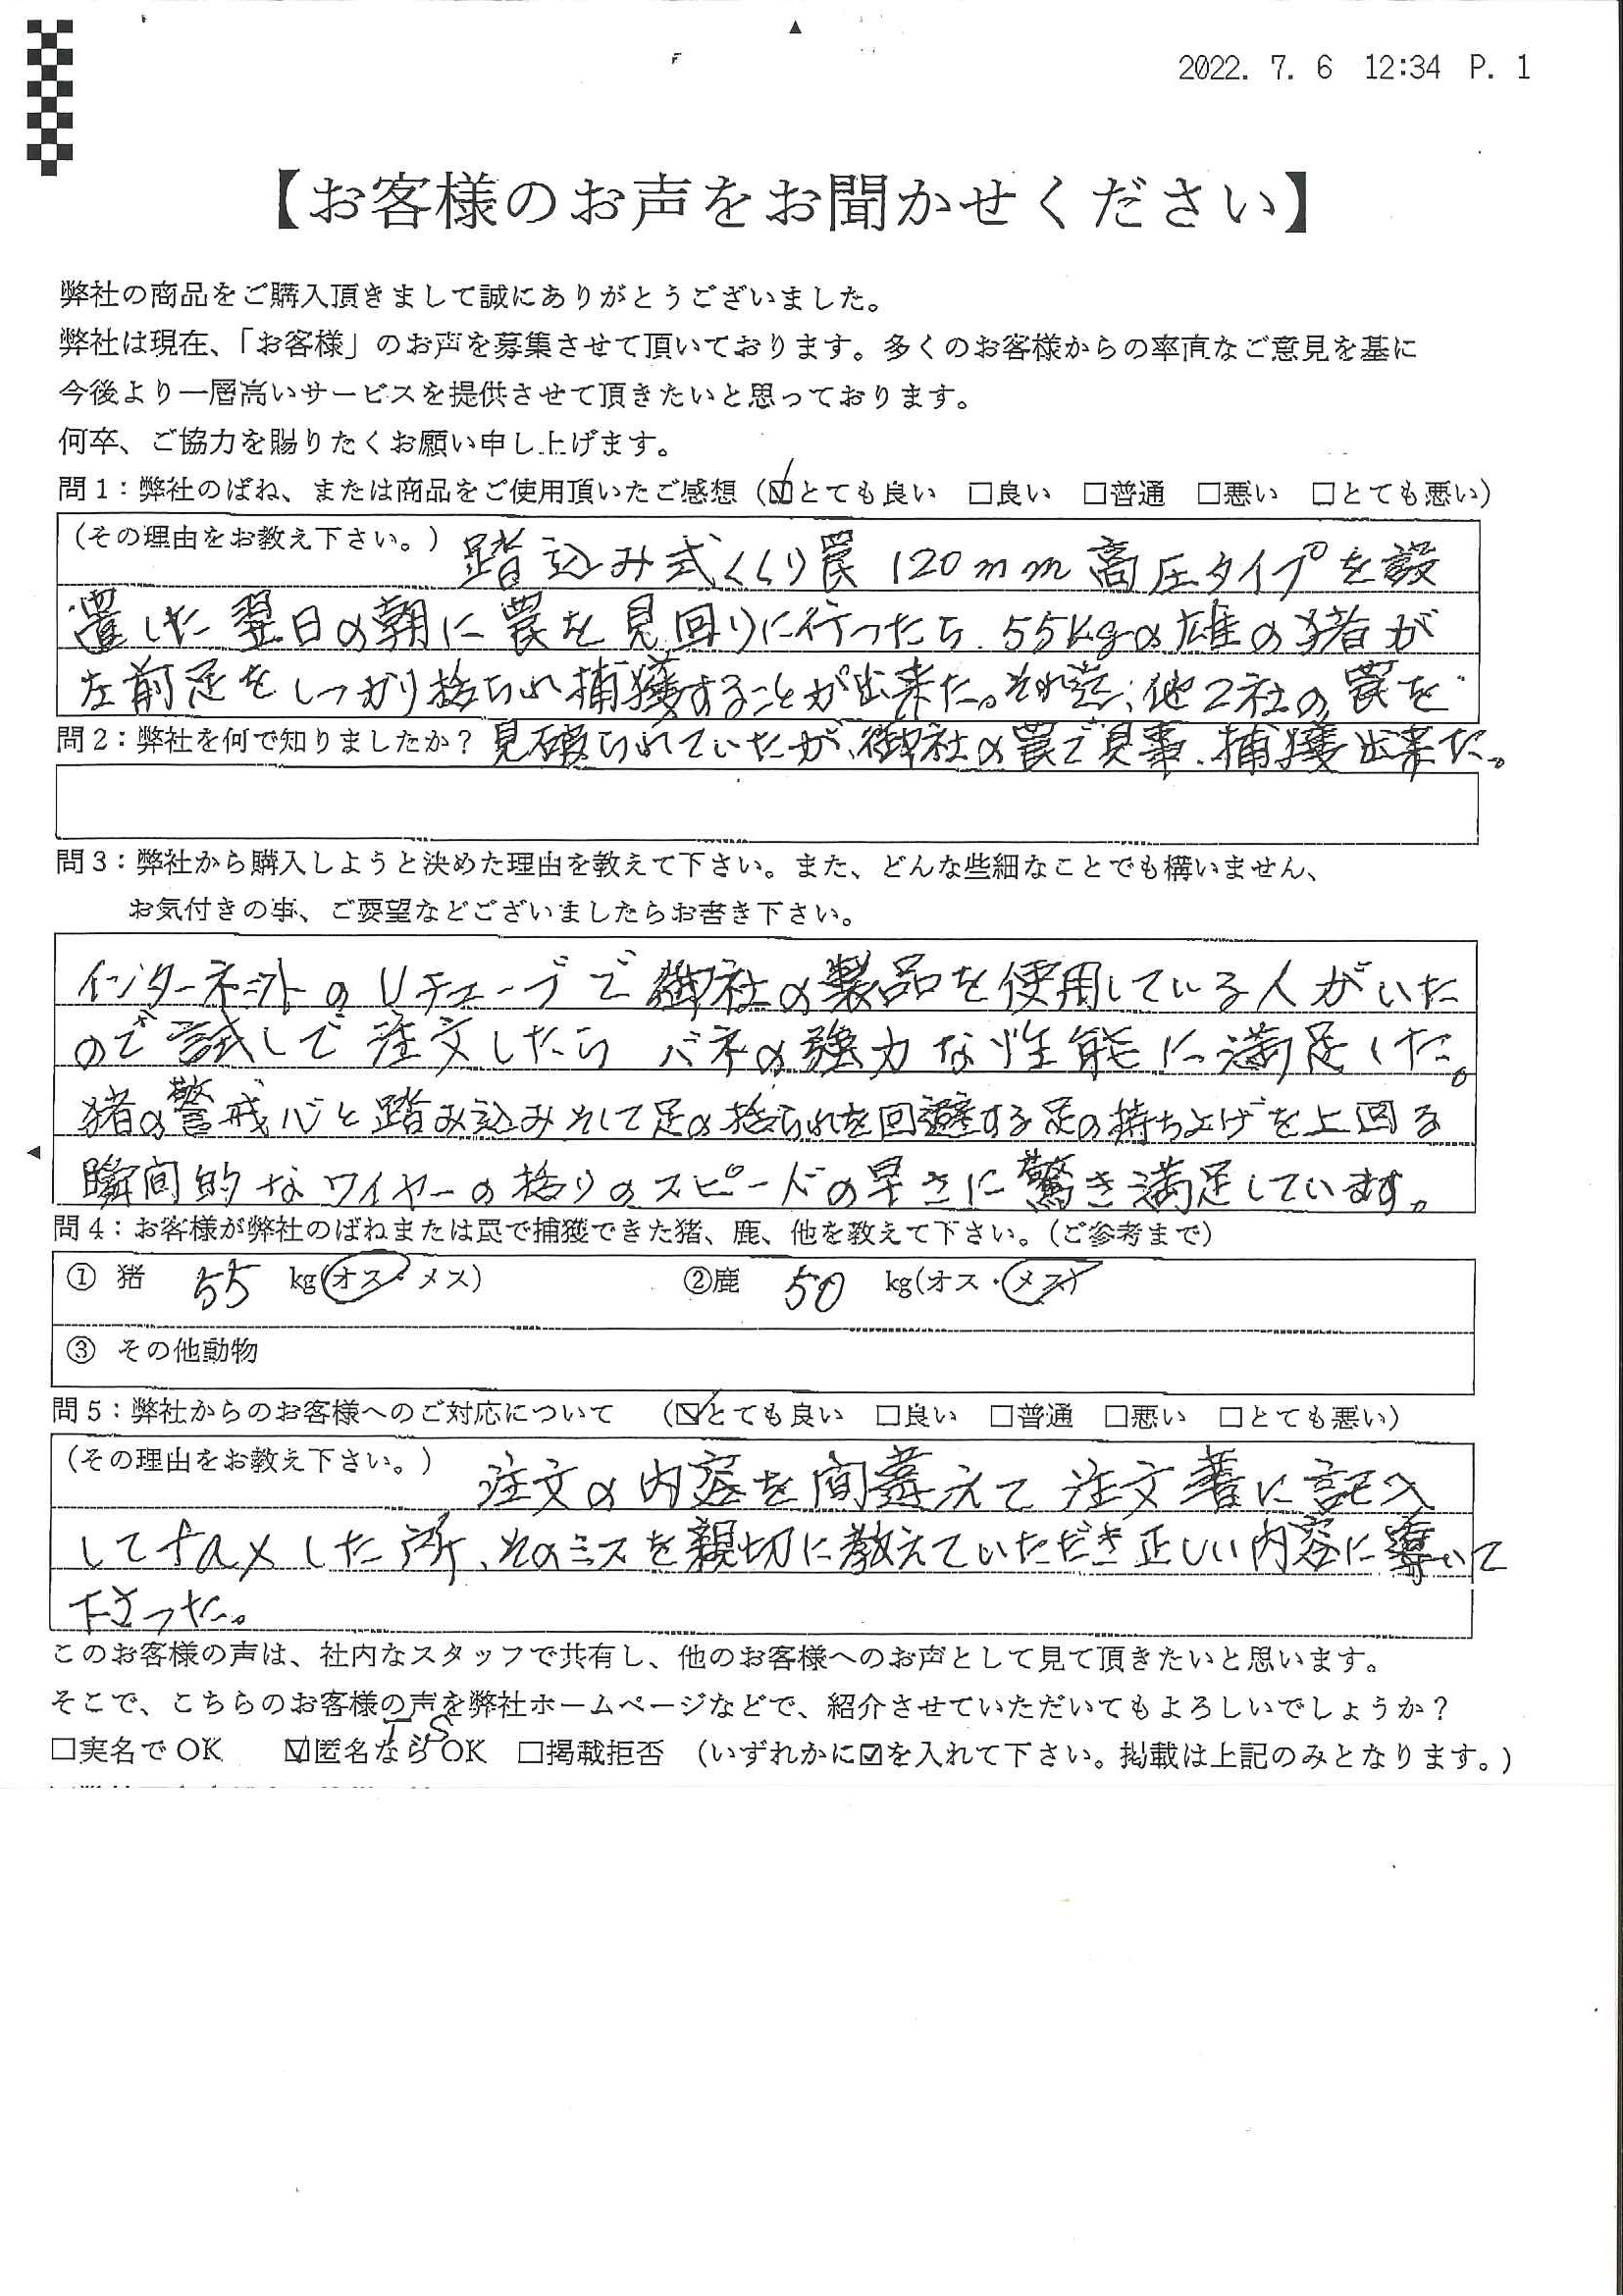 2022. 7. 6 12:34 P. 1
【お客様のお声をお聞かせください】
弊社の商品をご購入頂きまして誠にありがとうございました。
弊社は現在、「お客様」のお声を募集させて頂いております。多くのお客様からの率直なご意見を基に
今後より一層高いサービスを提供させて頂きたいと思っております。
何卒、ご協力を賜りたくお願い申し上げます。
問1：弊社のばね、または商品をご使用頂いたご感想（☑とても良い □良い □普通 □悪い □とても悪い）
（その理由をお教え下さい。）踏込み式くくり罠 120mm 高圧タイプを設
置した翌日の朝に罠を見回りに行ったら、55kgの雄の猪が
左前足をしっかり括られ捕獲することが出来た。それ迄、他2社の罠を
問2：弊社を何で知りましたか？見破られていたが、御社の罠で見事、捕獲出来た。
問3：弊社から購入しようと決めた理由を教えて下さい。また、どんな些細なことでも構いません、
お気付きの事、ご要望などございましたらお書き下さい。
インターネットのUチューブで御社の製品を使用している人がいた
ので試しで注文したら バネの強力な性能に満足した。
猪の警戒心と踏み込みそして足の括られを回避する足の持ち上げを上回る
瞬間的なワイヤーの括りのスピードの早さに驚き満足しています。
問4：お客様が弊社のばねまたは罠で捕獲できた猪、鹿、他を教えて下さい。（ご参考まで）
① 猪 55 kg(オス・メス) ②鹿 50 kg(オス・メス)
③ その他動物
問5：弊社からのお客様へのご対応について （☑とても良い □良い □普通 □悪い □とても悪い）
（その理由をお教え下さい。）注文の内容を間違えて注文書に記入
してfaxした所、そのミスを親切に教えていただき正しい内容に導いて
下さった。
このお客様の声は、社内なスタッフで共有し、他のお客様へのお声として見て頂きたいと思います。
そこで、こちらのお客様の声を弊社ホームページなどで、紹介させていただいてもよろしいでしょうか？
T S
□実名でOK ☑匿名ならOK □掲載拒否 （いずれかに☑を入れて下さい。掲載は上記のみとなります。）